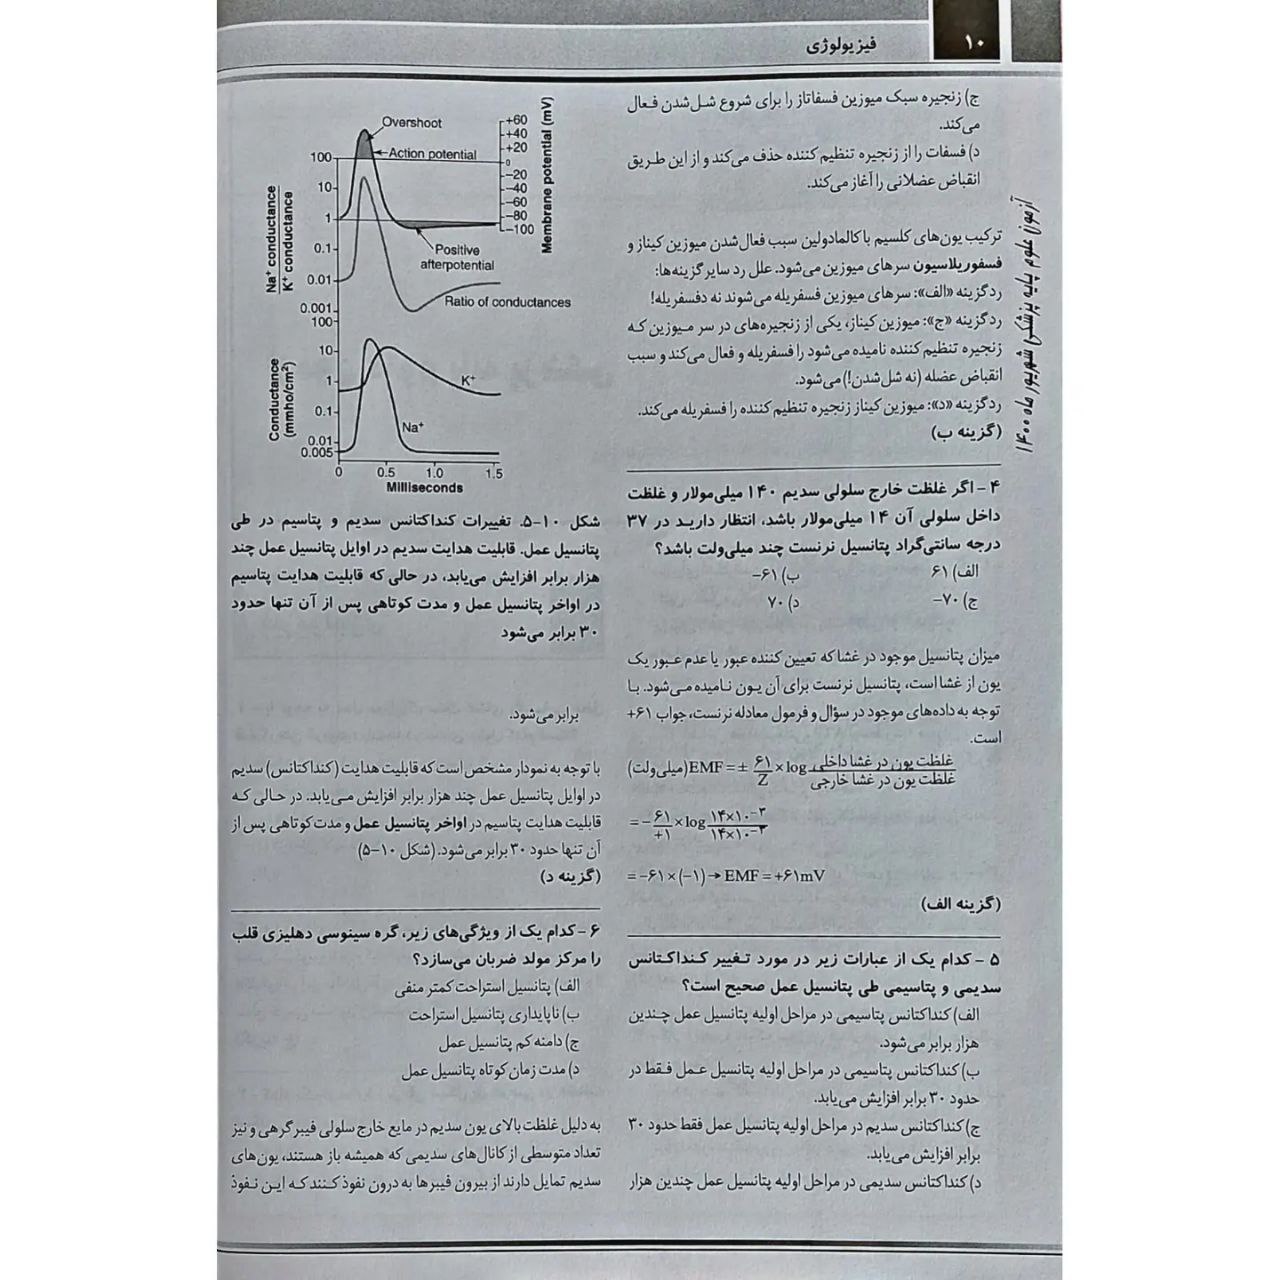 ۱۰
فیزیولوژی
ج) زنجیره سبک میوزین فسفاتاز را برای شروع شل‌شدن فعال
می‌کند.
د) فسفات را از زنجیره تنظیم کننده حذف می‌کند و از این طریق
انقباض عضلانی را آغاز می‌کند.
ترکیب یون‌های کلسیم با کالمادولین سبب فعال‌شدن میوزین کیناز و
فسفوریلاسیون سرهای میوزین می‌شود. علل رد سایر گزینه‌ها:
رد گزینه «الف»: سرهای میوزین فسفریله می‌شوند نه دفسفریله!
رد گزینه «ج»: میوزین کیناز، یکی از زنجیره‌های در سر میوزین که
زنجیره تنظیم کننده نامیده می‌شود را فسفریله و فعال می‌کند و سبب
انقباض عضله (نه شل‌شدن!) می‌شود.
رد گزینه «د»: میوزین کیناز زنجیره تنظیم کننده را فسفریله می‌کند.
(گزینه ب)
۴- اگر غلظت خارج سلولی سدیم ۱۴۰ میلی‌مولار و غلظت
داخل سلولی آن ۱۴ میلی‌مولار باشد، انتظار دارید در ۳۷
درجه سانتی‌گراد پتانسیل نرنست چند میلی‌ولت باشد؟
الف) ۶۱ ب) ۶۱-
ج) ۷۰- د) ۷۰
میزان پتانسیل موجود در غشا که تعیین کننده عبور یا عدم عبور یک
یون از غشا است، پتانسیل نرنست برای آن یون نامیده می‌شود. با
توجه به داده‌های موجود در سؤال و فرمول معادله نرنست، جواب ۶۱+
است.
(میلی‌ولت) EMF = ± ۶۱/Z × log غلظت یون در غشا داخلی/غلظت یون در غشا خارجی
= - ۶۱/+۱ × log ۱۴×۱۰⁻³/۱۴×۱۰⁻²
= -۶۱ × (-۱) → EMF = +۶۱mV
(گزینه الف)
۵- کدام یک از عبارات زیر در مورد تغییر کنداکتانس
سدیمی و پتاسیمی طی پتانسیل عمل صحیح است؟
الف) کنداکتانس پتاسیمی در مراحل اولیه پتانسیل عمل چندین
هزار برابر می‌شود.
ب) کنداکتانس پتاسیمی در مراحل اولیه پتانسیل عمل فقط در
حدود ۳۰ برابر افزایش می‌یابد.
ج) کنداکتانس سدیم در مراحل اولیه پتانسیل عمل فقط حدود ۳۰
برابر افزایش می‌یابد.
د) کنداکتانس سدیمی در مراحل اولیه پتانسیل عمل چندین هزار
آزمون علوم پایه پزشکی شهریور ماه ۱۴۰۰
Overshoot
Action potential
Positive
afterpotential
Ratio of conductances
Na⁺ conductance
K⁺ conductance
100
10
1
0.1
0.01
0.001
+60
+40
+20
0
–20
–40
–60
–80
–100
Membrane potential (mV)
Conductance
(mmho/cm²)
100
10
1
0.1
0.01
0.005
K⁺
Na⁺
0 0.5 1.0 1.5
Milliseconds
شکل ۱۰-۵. تغییرات کنداکتانس سدیم و پتاسیم در طی
پتانسیل عمل. قابلیت هدایت سدیم در اوایل پتانسیل عمل چند
هزار برابر افزایش می‌یابد، در حالی که قابلیت هدایت پتاسیم
در اواخر پتانسیل عمل و مدت کوتاهی پس از آن تنها حدود
۳۰ برابر می‌شود
برابر می‌شود.
با توجه به نمودار مشخص است که قابلیت هدایت (کنداکتانس) سدیم
در اوایل پتانسیل عمل چند هزار برابر افزایش می‌یابد. در حالی که
قابلیت هدایت پتاسیم در اواخر پتانسیل عمل و مدت کوتاهی پس از
آن تنها حدود ۳۰ برابر می‌شود. (شکل ۱۰-۵)
(گزینه د)
۶- کدام یک از ویژگی‌های زیر، گره سینوسی دهلیزی قلب
را مرکز مولد ضربان می‌سازد؟
الف) پتانسیل استراحت کمتر منفی
ب) ناپایداری پتانسیل استراحت
ج) دامنه کم پتانسیل عمل
د) مدت زمان کوتاه پتانسیل عمل
به دلیل غلظت بالای یون سدیم در مایع خارج سلولی فیبر گرهی و نیز
تعداد متوسطی از کانال‌های سدیمی که همیشه باز هستند، یون‌های
سدیم تمایل دارند از بیرون فیبرها به درون نفوذ کنند که این نفوذ